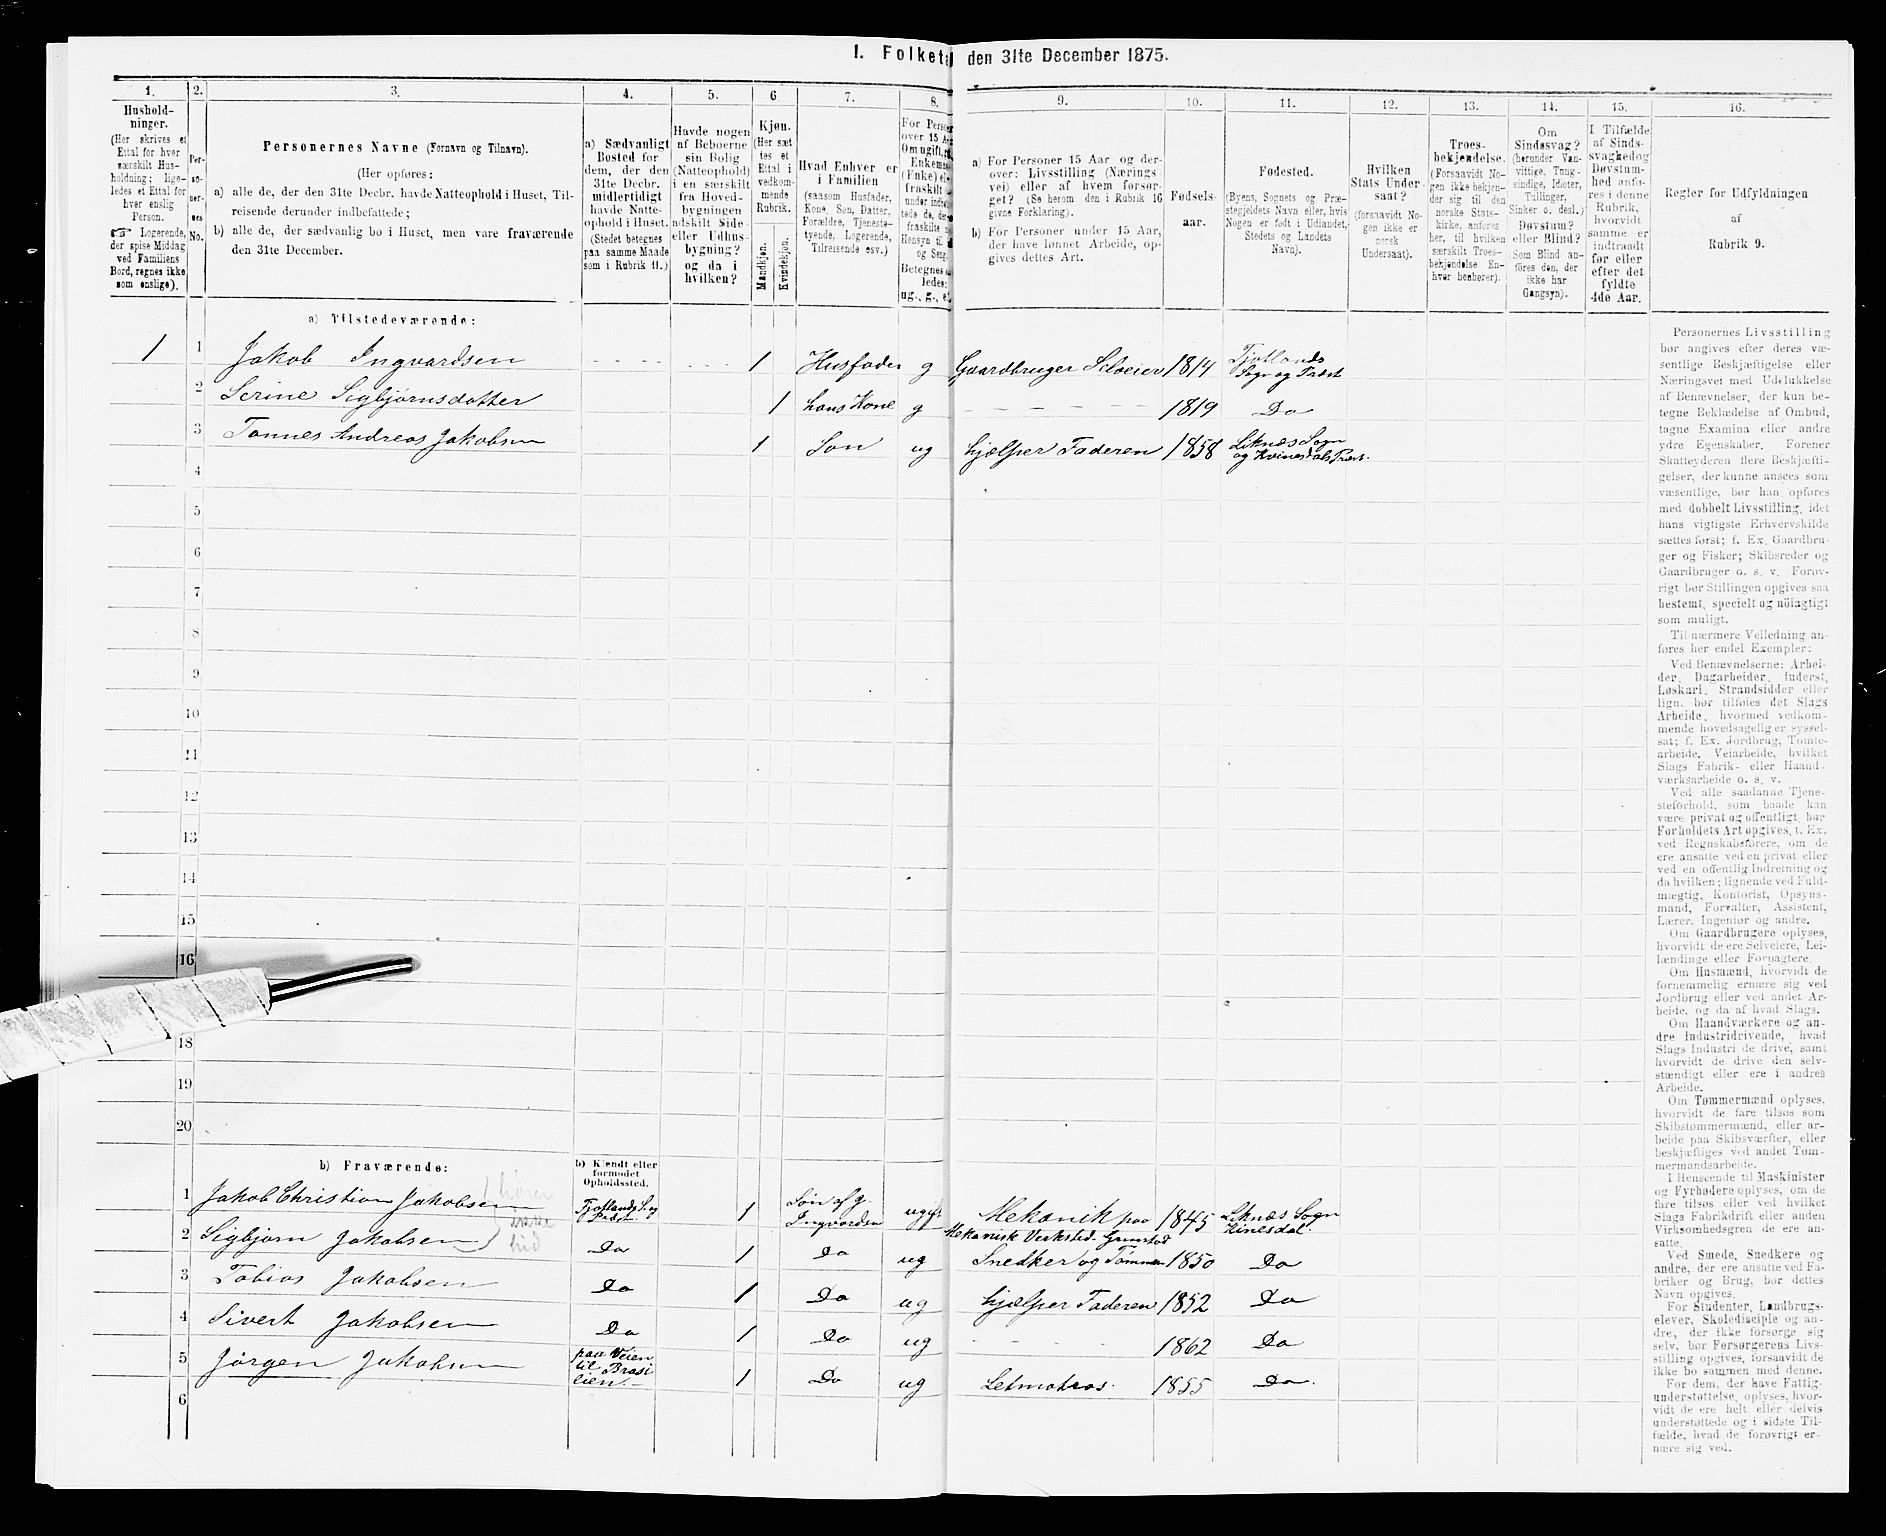 I. Folketa den 31te December 1875.
1.
Hushold-
ninger.
(Her skrives et
Ettal for hver
særskilt Hus-
holdning; lige-
ledes et Ettal for
hver enslig
Person.
☞ Logerende,
der spise Middag
ved Familiens
Bord, regnes ikke
som enslige).
2.
Per-
so-
ner-
nes
No.
3.
Personernes Navne (Fornavn og Tilnavn).
(Her opføres:
a) alle de, der den 31te Decbr. havde Natteophold i Huset, Til-
reisende derunder indbefattede;
b) alle de, der sædvanlig bo i Huset, men vare fraværende
den 31te December.
4.
a) Sædvanligt
Bosted for
dem, der den
31te Decbr.
midlertidigt
havde Natte-
ophold i Huset.
(Stedet betegnes
paa samme Maade
som i Rubrik 11.)
5.
Havde nogen
af Beboerne
sin Bolig
(Natteophold)
i en særskilt
fra Hoved-
bygningen
adskilt Side-
eller Udhus-
bygning?
og da i
hvilken?
6
Kjøn.
(Her sæt
tes et
Ettal i
vedkom-
mende
Rubrik.
Mandkjøn.
Kvindekjøn.
7.
Hvad Enhver er
i Familien
(saasom Husfader,
Kone, Søn, Datter,
Forældre, Tjeneste-
tyende, Logerende,
Tilreisende osv.)
8.
For Perso
over 15 A
Om ugift,
Enkema
(Enke) el
fraskilt
Hensyn til
og Seng
Betegnes
ledes:
ug., g., e.
9.
a) For Personer 15 Aar og der-
over: Livsstilling (Nærings-
vei) eller af hvem forsør-
get? (Se herom den i Rubrik 16
givne Forklaring).
b) For Personer under 15 Aar,
der have lønnet Arbeide, op-
gives dettes Art.
10.
Fødsels-
aar.
11.
Fødested.
(Byens, Sognets og Præ-
stegjeldets Navn eller, hvis
Nogen er født i Udlandet,
Stedets og Landets
Navn).
12.
Hvilken
Stats Under-
saat?
(forsaavidt No-
gen ikke er
norsk
Undersaat).
13.
Troes-
bekjendelse.
(Forsaavidt No-
gen ikke bekjen-
der sig til den
norske Stats-
kirke, anføres
her, til hvilken
særskilt Troes-
bekjendelse En-
hver henhører).
14.
Om
Sindssvag?
(herunder Van-
vittige, Tung-
sindige, Idioter,
Tullinger,
Sinker o. desl.)
Døvstum?
eller Blind?
(Som Blind an-
føres den, der
ikke har
Gangsyn).
15.
I Tilfælde
af Sinds-
svaghed og
Døvstum-
hed anfø-
res i denne
Rubrik,
hvorvidt
samme er
indtraadt
før eller
efter det
fyldte
4de Aar.
16.
Regler for Udfyldningen
af
Rubrik 9.
a) Tilstedeværende:
1 1 Jakob Ingvardsen 1 Husfader g Gaardbruger Selveier 1814 Fjotlands
Sogn og Præst
2 Serine Sigbjørnsdatter 1 hans Kone g 1819 Do
3 Tønnes Andreas Jakobsen 1 Søn ug hjælper Faderen 1858 Liknæs Sogn
og Kvinesdals Præst.
4
5
6
7
8
9
10
11
12
13
14
15
16
18
19
20
b) Fraværende:
b) Kjendt eller
formodet
Opholdssted.
1 Jakob Christian Jakobsen Fjotlands S. og
Præst. 1 Søn af J.
Ingvardsen ugift Mekanik paa
Mekanisk Verksted. Grimstad 1845 Liknæs Sogn
Kinesdal
hører
ikke
hid
2 Sigbjørn Jakobsen Do 1 Do ug Snedker og Tømmer 1850 Do
3 Tobias Jakobsen Do 1 Do ug hjælper Faderen 1852 Do
4 Sivert Jakobsen Do 1 Do ug 1862 Do
5 Jørgen Jakobsen paa Veien
til Brasi
lien. 1 Do ug Letmatros. 1855 Do.
6
Personernes Livsstilling
bør angives efter deres væ-
sentlige Beskjæftigelse eller
Næringsvei med Udelukkelse
af Benævnelser, der kun be-
tegne Beklædelse af Ombud,
tagne Examina eller andre
ydre Egenskaber. Forener
Skatteyderen flere Beskjæfti-
gelser, der kunne ansees som
væsentlige, bør han opføres
med dobbelt Livsstilling, idet
hans vigtigste Erhvervskilde
sættes først; f. Ex. Gaardbru-
ger og Fisker; Skibsreder og
Gaardbruger o. s. v. Forøv-
rigt bør Stillingen opgives saa
bestemt, specielt og nöiagtigt
som muligt.
Til nærmere Veiledning an-
føres her endel Exempler:
Ved Benævnelserne: Arbei-
der, Dagarbeider, Inderst,
Løskarl, Strandsidder eller
lign. bør tilføies det Slags
Arbeide, hvormed vedkom-
mende hovedsagelig er syssel-
sat; f. Ex. Jordbrug, Tomte-
arbeide, Veiarbeide, hvilket
Slags Fabrik- eller Haand-
værksarbeide o. s. v.
Ved alle saadanne Tjene-
steforhold, som baade kan
være privat og offentligt, bør
Forholdets Art opgives, t. Ex.
ved Regnskabsførere, om de
ere ansatte ved en privat eller
ved en offentlig Indretning og
da hvilken; lignende ved Fuld-
mægtig, Kontorist, Opsyns-
mand, Forvalter, Assistent,
Lærer, Ingeniør og andre.
Om Gaardbrugere oplyses,
hvorvidt de ere Selveiere, Lei-
lændinge eller Forpagtere.
Om Husmænd, hvorvidt de
fornemmelig ernære sig ved
Jordbrug eller ved andet Ar-
beide, og da af hvad Slags.
Om Haandværkere og an-
dre Industridrivende, hvad
Slags Industri de drive, samt
hvorvidt de drive den selv-
stændigt eller ere i andres
Arbeide.
Om Tømmermænd oplyses,
hvorvidt de fare tilsøs som
Skibstømmermænd, eller ar-
beide paa Skibsværfter, eller
beskjæftiges ved andet Tøm-
mermandsarbeide.
I Henseende til Maskinister
og Fyrbødere oplyses, om de
fare tilsøs eller ved hvilket
Slags Fabrikdrift eller anden
Virksomhedsgren de ere an-
satte.
Ved Smede, Snedkere og
andre, der ere ansatte ved Fa-
briker og Brug, bør dettes
Navn opgives.
For Studenter, Landbrugs-
elever, Skoledisciple og an-
dre, der ikke forsørge sig
selv, bør Forsørgerens Livs-
stilling opgives, forsaavidt de
ikke bo sammen med denne.
For dem, der have Fattig-
understøttelse, oplyses, hvor-
vidt de ere helt eller delvis
understøttede og i sidste Til-
fælde, hvad de forøvrigt er-
nære sig ved.